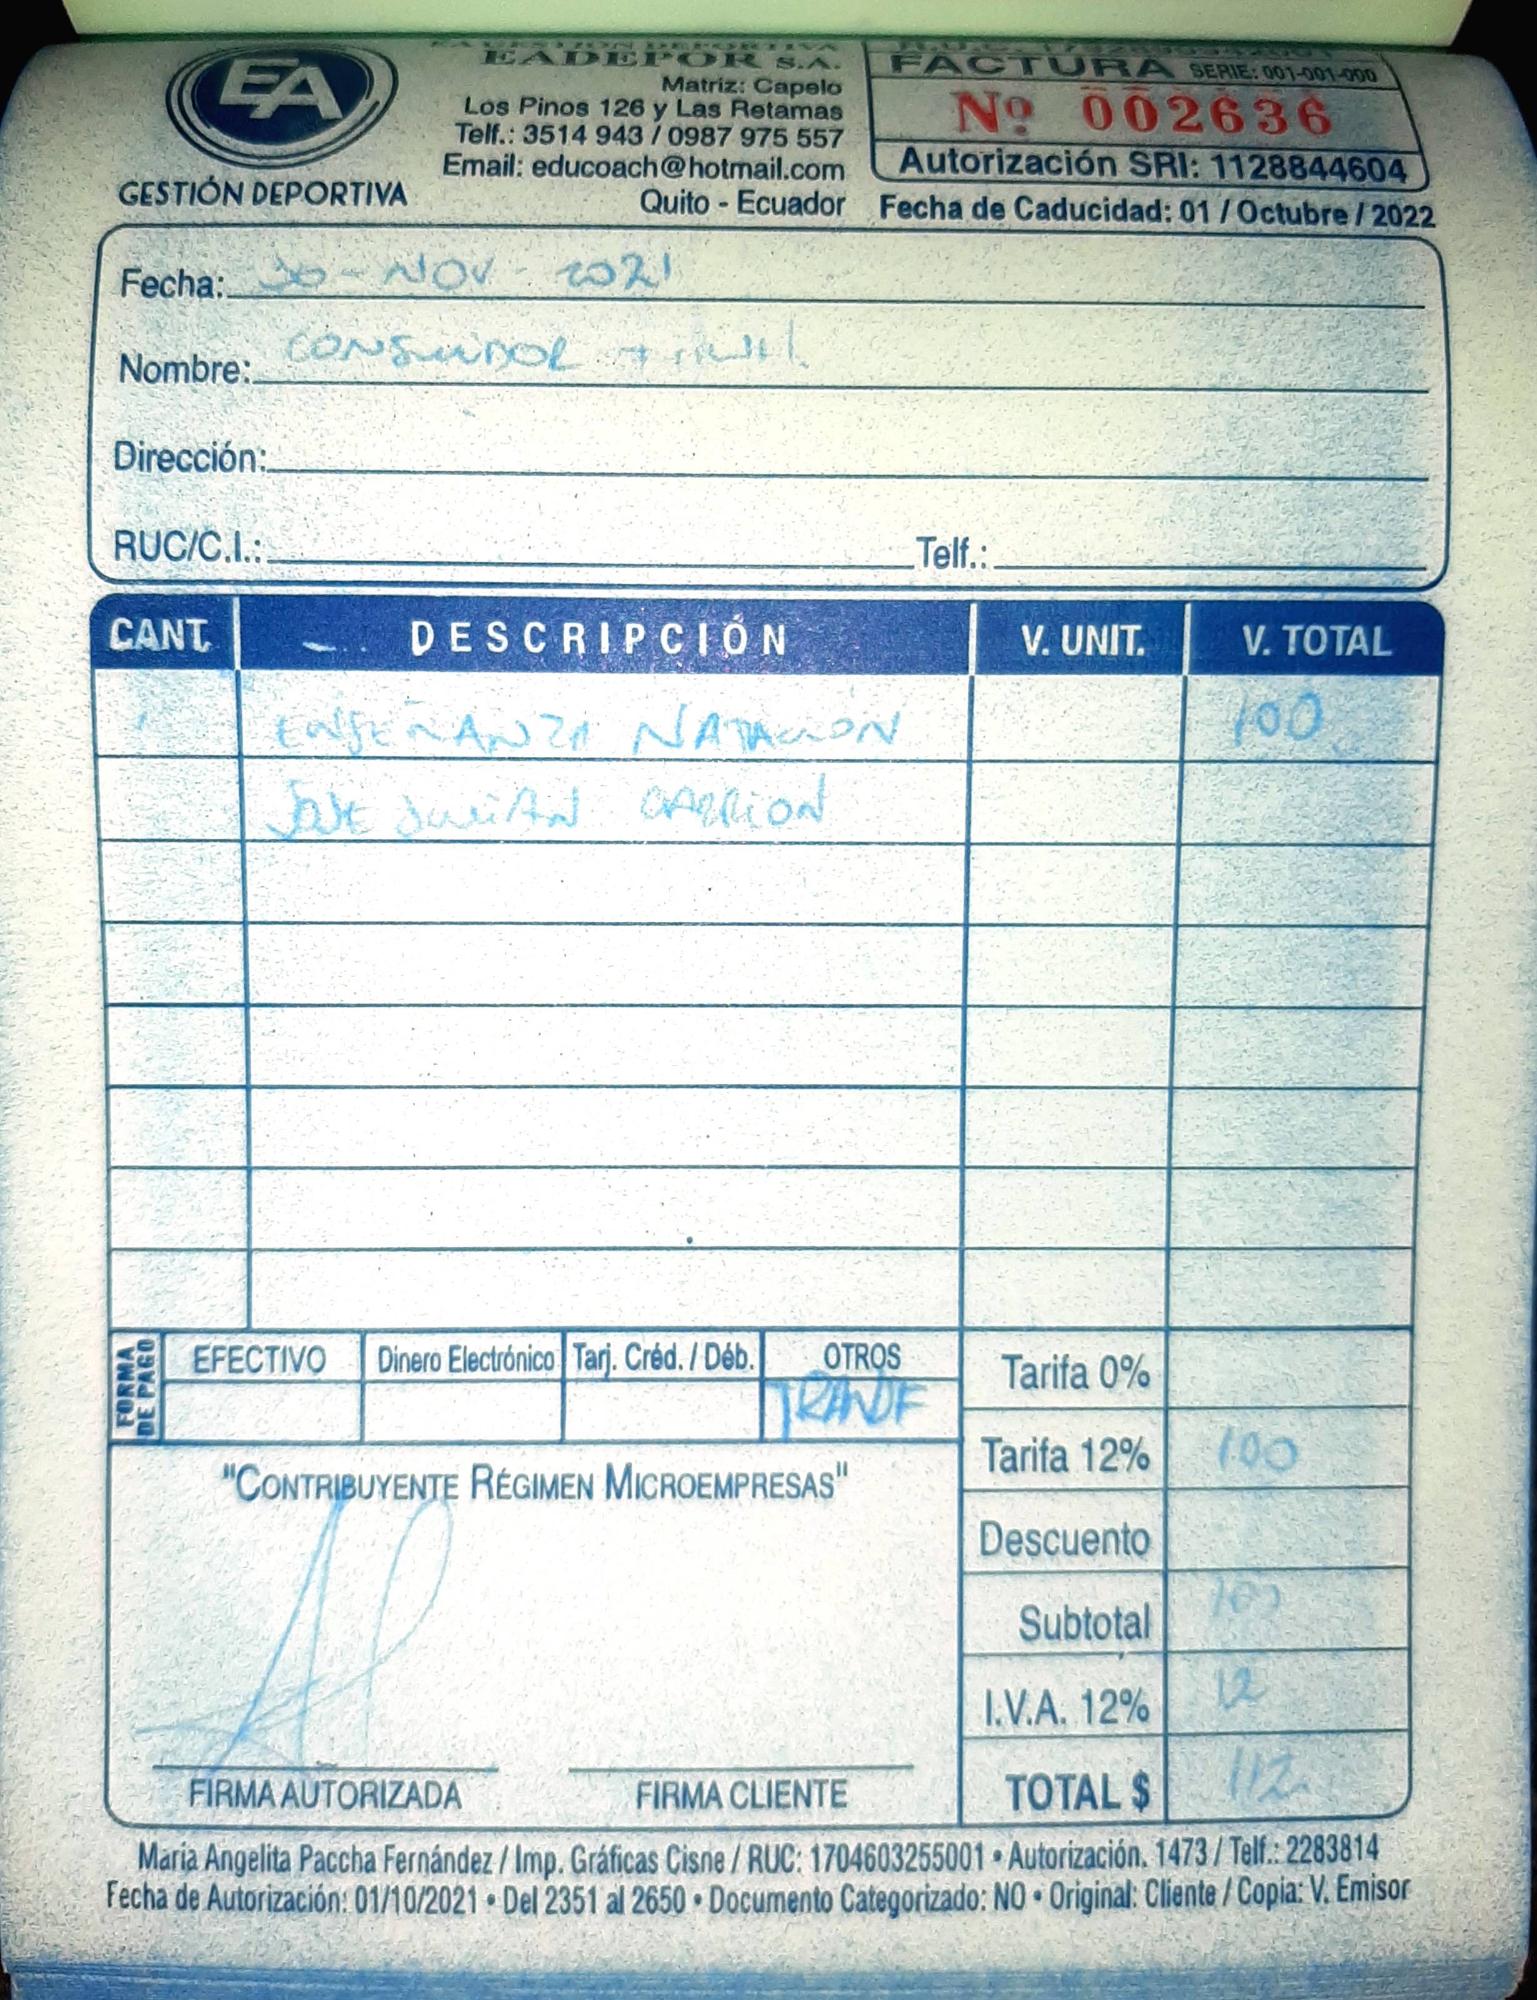 EA
GESTIÓN DEPORTIVA
EADEPOR S.A.
Matriz: Capelo
Los Pinos 126 y Las Retamas
Telf.: 3514 943 / 0987 975 557
Email: educoach@hotmail.com
Quito - Ecuador
FACTURA SERIE: 001-001-000
Nº 002636
Autorización SRI: 1128844604
Fecha de Caducidad: 01 / Octubre / 2022
Fecha: 30 - NOV - 2021
Nombre: CONSUMIDOR
Dirección:
RUC/C.I.: Telf.:
CANT. DESCRIPCIÓN V. UNIT. V. TOTAL
ENSEÑANZA NATACION 100
JOSE JULIAN CARRION
FORMA DE PAGO
EFECTIVO Dinero Electrónico Tarj. Créd. / Déb. OTROS
TRANSF
Tarifa 0%
Tarifa 12% 100
Descuento
Subtotal 100
I.V.A. 12% 12
TOTAL $ 112
"CONTRIBUYENTE RÉGIMEN MICROEMPRESAS"
FIRMA AUTORIZADA FIRMA CLIENTE
María Angelita Paccha Fernández / Imp. Gráficas Cisne / RUC: 1704603255001 • Autorización. 1473 / Telf.: 2283814
Fecha de Autorización: 01/10/2021 • Del 2351 al 2650 • Documento Categorizado: NO • Original: Cliente / Copia: V. Emisor